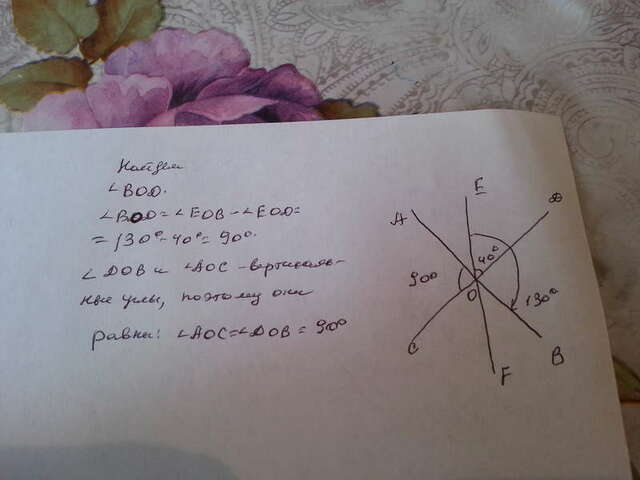 Найдем
∠BOD.
∠BOD = ∠EOB - ∠EOD =
= 130° - 40° = 90°.
∠DOB и ∠AOC - вертикаль-
ные углы, поэтому они
равны: ∠AOC = ∠DOB = 90°
E
A
D
40°
90°
O
130°
C
B
F